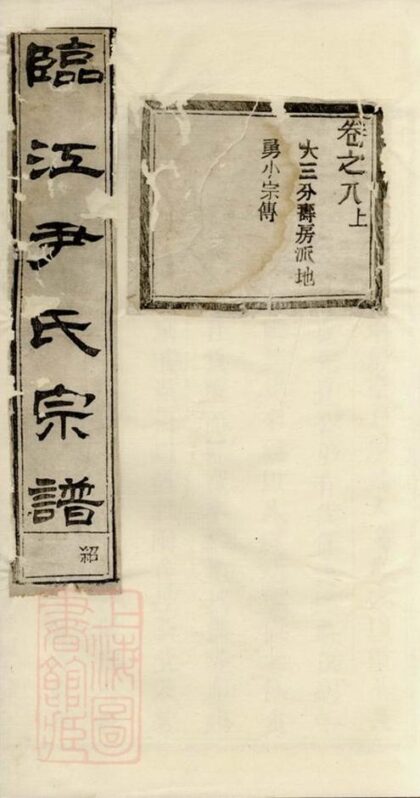 臨江尹氏宗譜
紹
卷之八上
大三分壽房派地
勇小宗傳
上海圖
書館藏